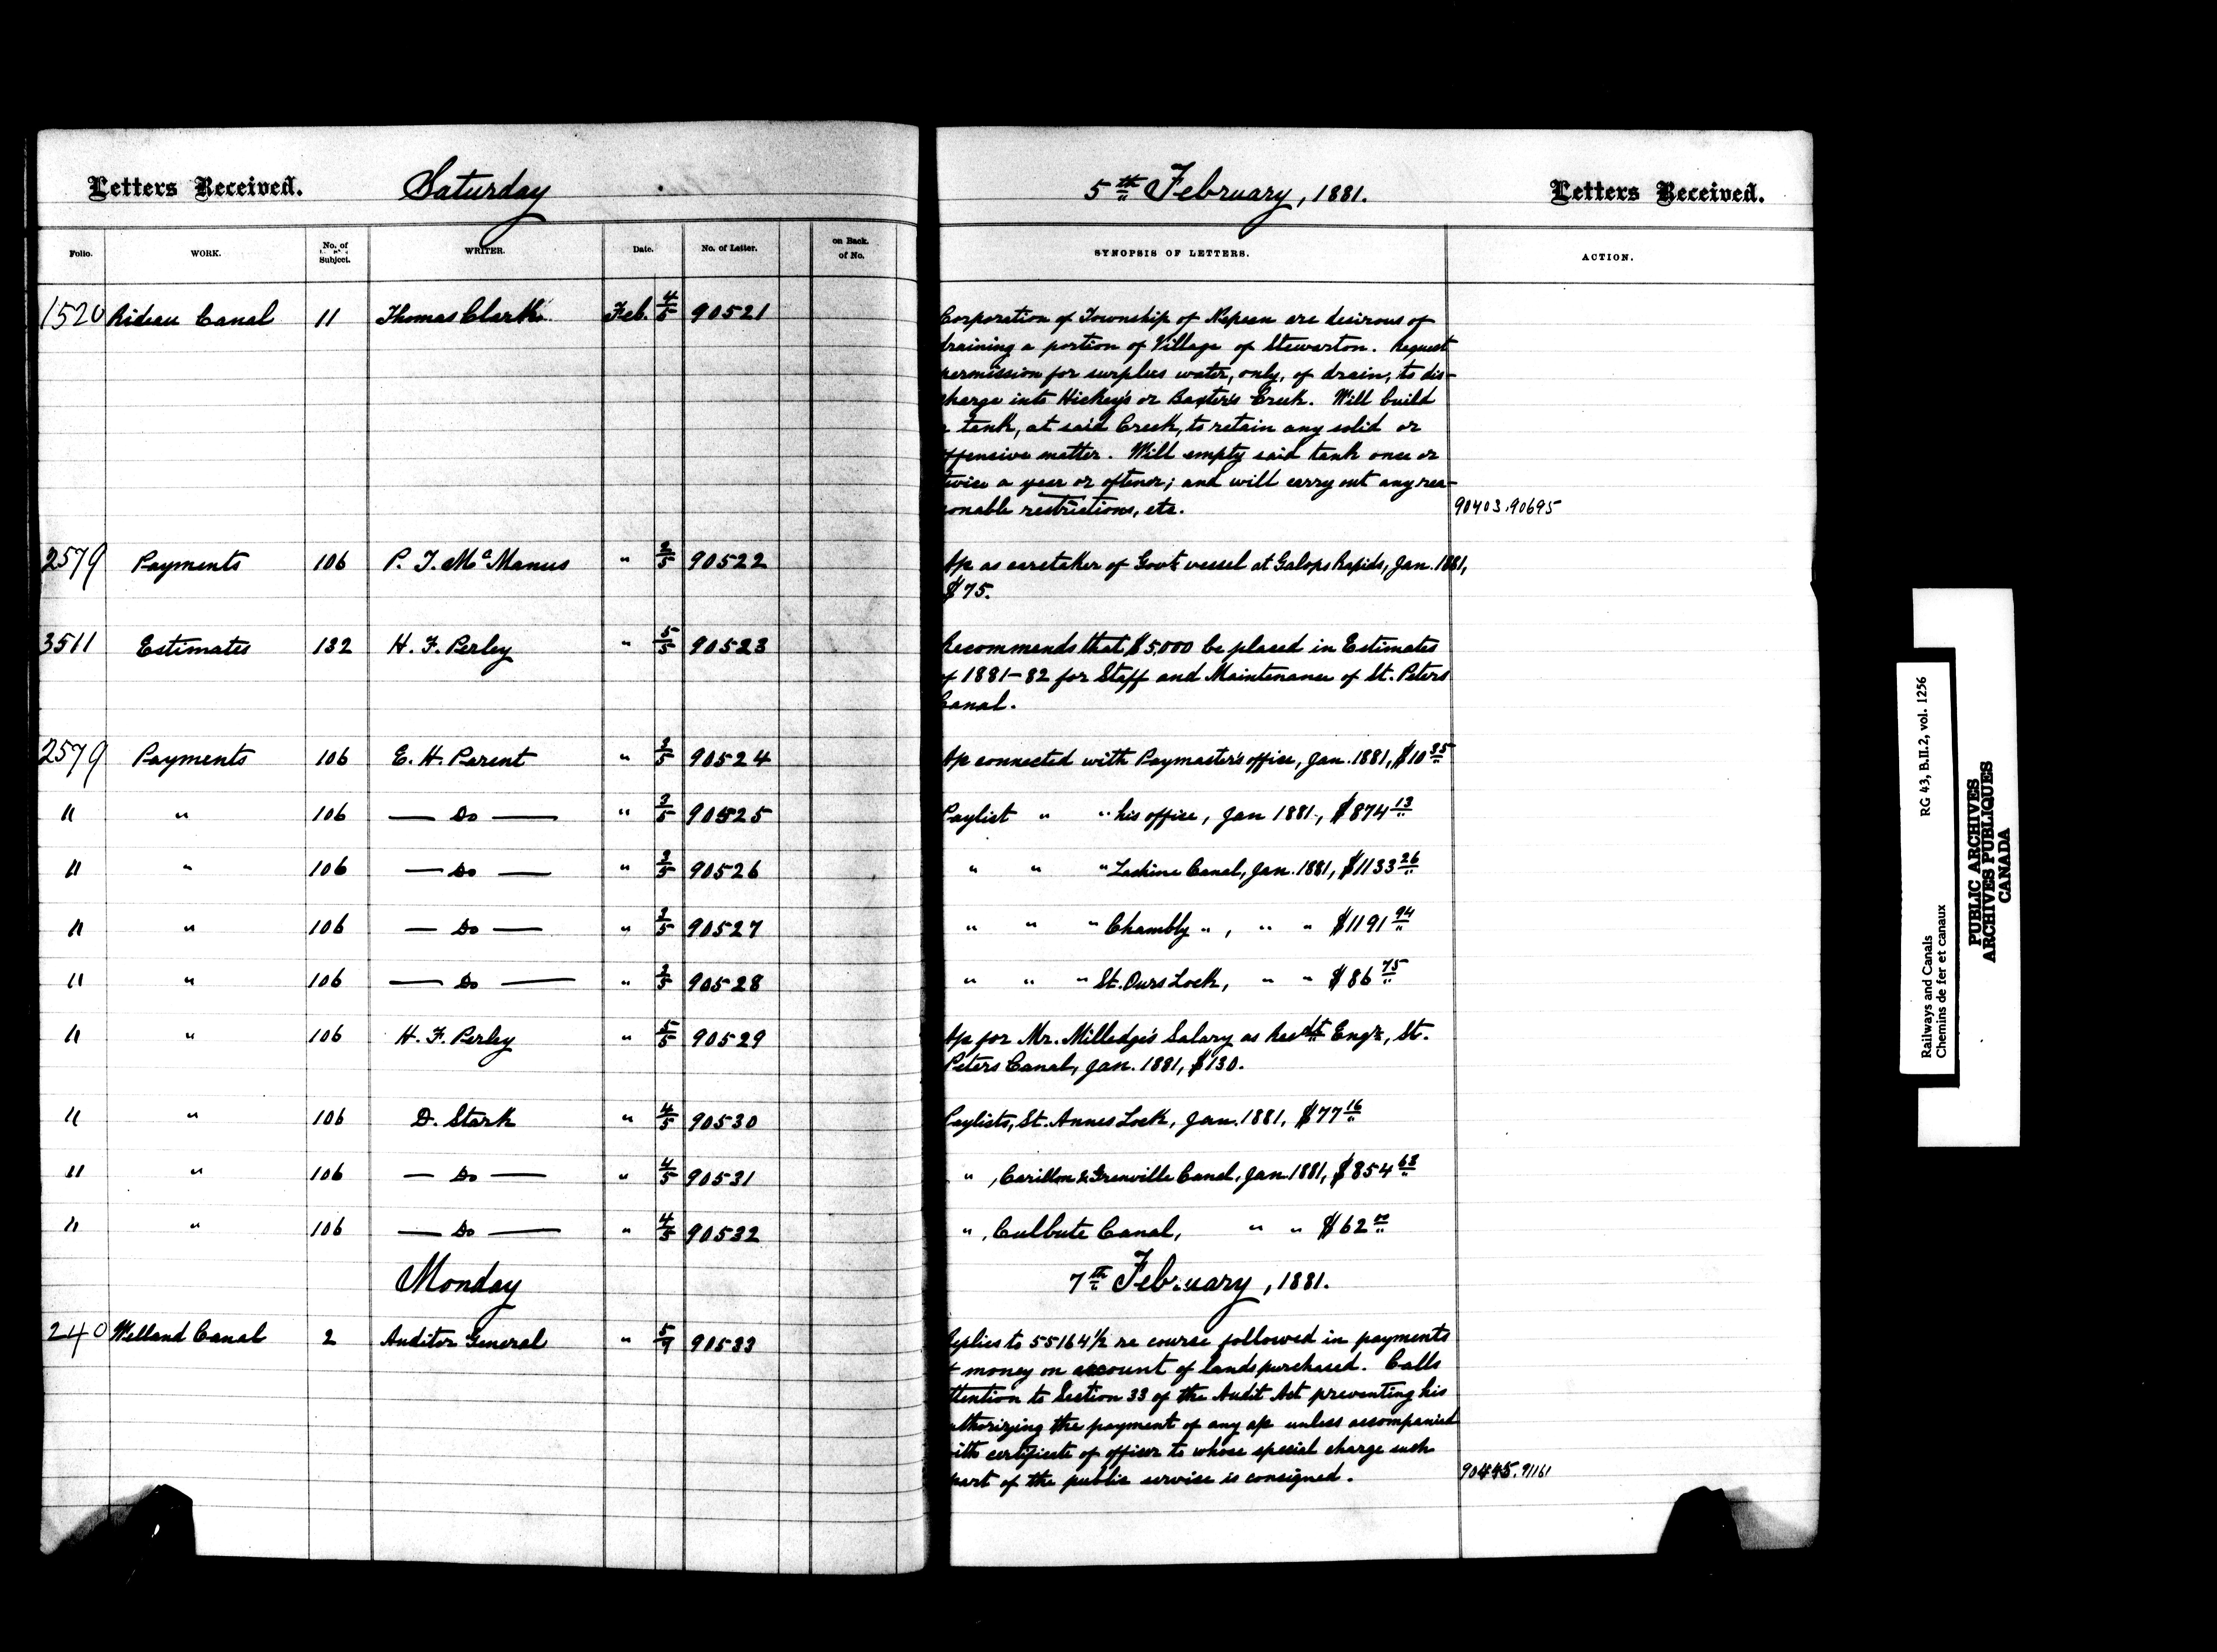 Letters Received. Saturday 5th February, 1881. Letters Received.
Folio. WORK. No. of Subject. WRITER. Date. No. of Letter. on Back. of No. SYNOPSIS OF LETTERS. ACTION.
1520 Rideau Canal 11 Thomas Clark Feb. 4/5 90521 Corporation of Township of Nepean are desirous of
draining a portion of Village of Stewarton. Request
permission for surplus water, only, of drain, to dis-
charge into Hickey's or Baxter's Creek. Will build
a tank, at said Creek, to retain any solid or
offensive matter. Will empty said tank once or
twice a year or oftener; and will carry out any rea-
sonable restrictions, etc. 90403.90695
2579 Payments 106 P. J. McManus " 2/5 90522 A/c as caretaker of Govt vessel at Galops Rapids, Jan. 1881,
$75.
3511 Estimates 132 H. F. Perley " 5/5 90523 Recommends that $5,000 be placed in Estimates
of 1881-82 for Staff and Maintenance of St. Peters
Canal.
2579 Payments 106 E. H. Parent " 3/5 90524 A/c connected with Paymaster's office, Jan. 1881, $10 35
" " 106 — Do — " 3/5 90525 Paylist " " his office, Jan 1881, $874 13
" " 106 — Do — " 3/5 90526 " " " Lachine Canal, Jan. 1881, $1133 26
" " 106 — Do — " 3/5 90527 " " " Chambly ", " " $1191 94
" " 106 — Do — " 3/5 90528 " " " St. Ours Lock, " " $86 75
" " 106 H. F. Perley " 5/5 90529 A/c for Mr. Milledge's Salary as Resdt Engr, St.
Peters Canal, Jan. 1881, $130.
" " 106 D. Stark " 4/5 90530 Paylists, St. Annes Lock, Jan. 1881, $77 16
" " 106 — Do — " 4/5 90531 " , Carillon & Grenville Canal, Jan. 1881, $854 63
" " 106 — Do — " 4/5 90532 " , Culbute Canal, " " $62 00
Monday 7th February, 1881.
240 Welland Canal 2 Auditor General " 5/7 90533 Replies to 55164½ re course followed in payments
of money on account of lands purchased. Calls
attention to Section 33 of the Audit Act preventing his
authorizing the payment of any a/c unless accompanied
with certificate of officer to whose special charge such
part of the public service is consigned. 90445.91161
Railways and Canals RG 43, B.II.2, vol. 1256
Chemins de fer et canaux
PUBLIC ARCHIVES
ARCHIVES PUBLIQUES
CANADA